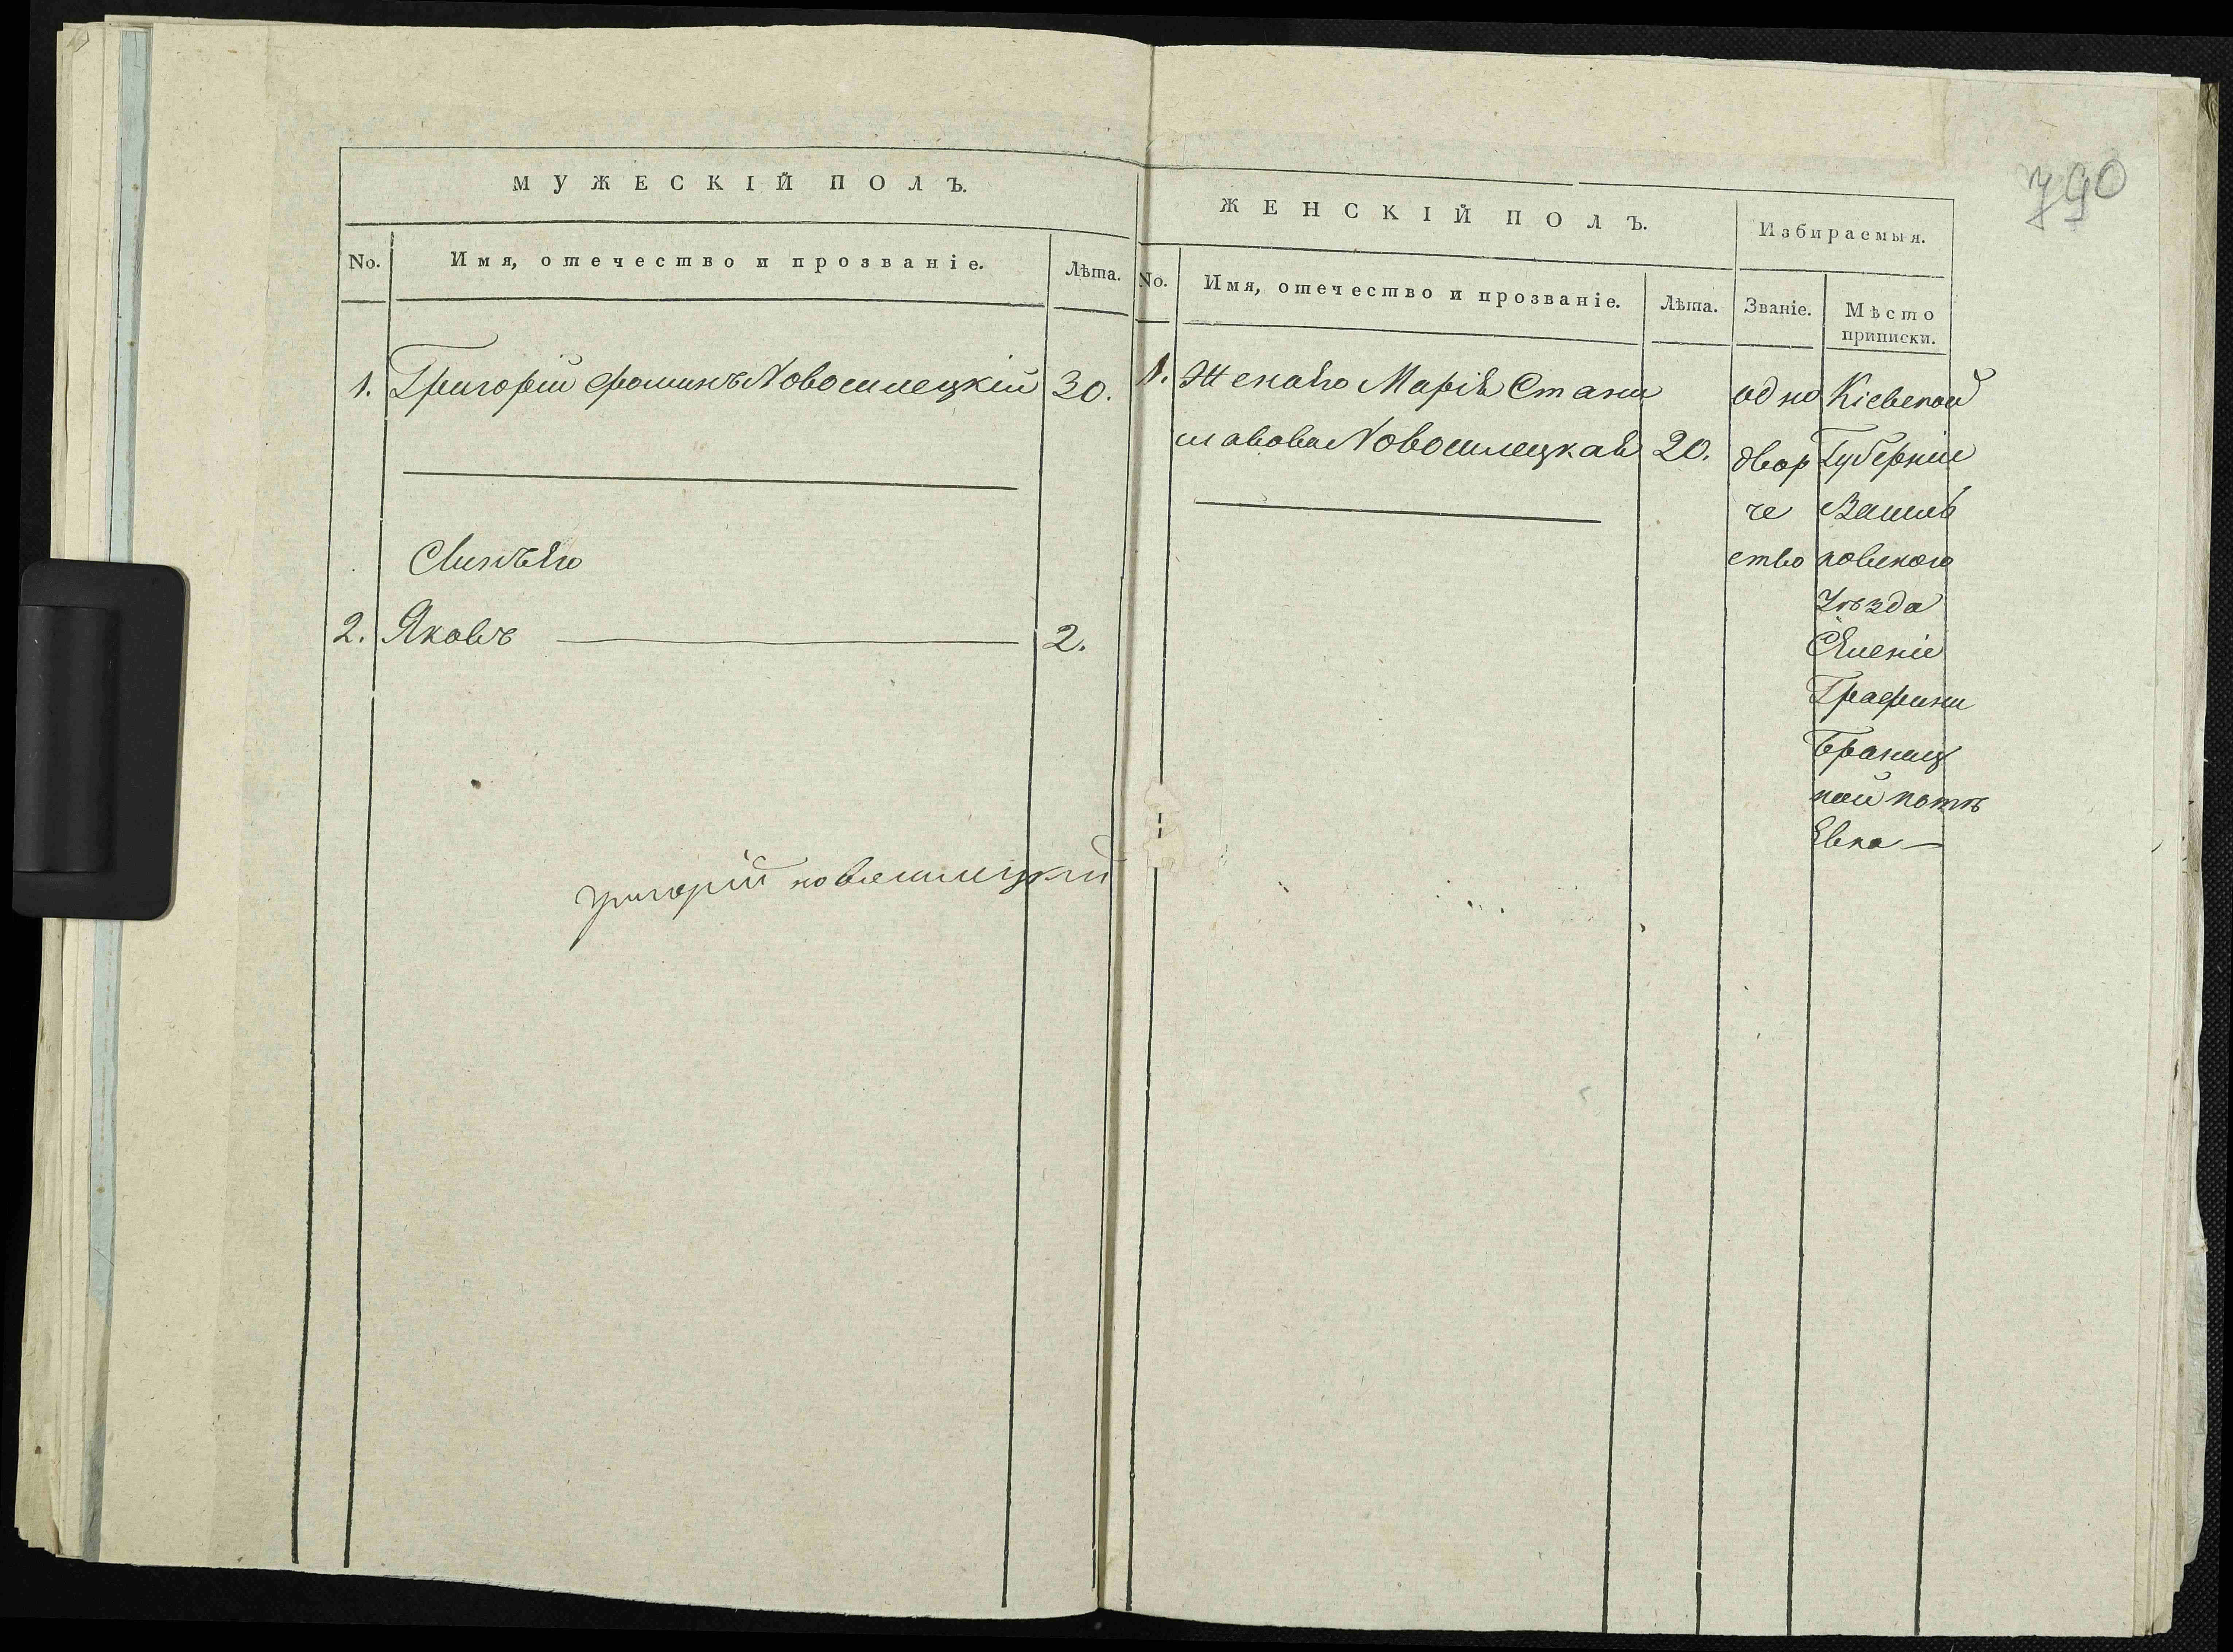 790
МУЖЕСКІЙ ПОЛЪ.
No. Имя, отечество и прозваніе. Лѣта.
1. Григорій Фоминъ Новошилецкій 30.
Сынъ Его
2. Яковъ 2.
Григорій новошилецкий
ЖЕНСКІЙ ПОЛЪ. Избираемыя.
No. Имя, отечество и прозваніе. Лѣта. Званіе. Мѣсто
приписки.
1. Жена Его Марія Стани одно Кіевской
славова Новошилецкая 20. двор Губерніи
че Василь
ство ковского
Уѣзда
Имѣніе
Графини
Браниц
кой